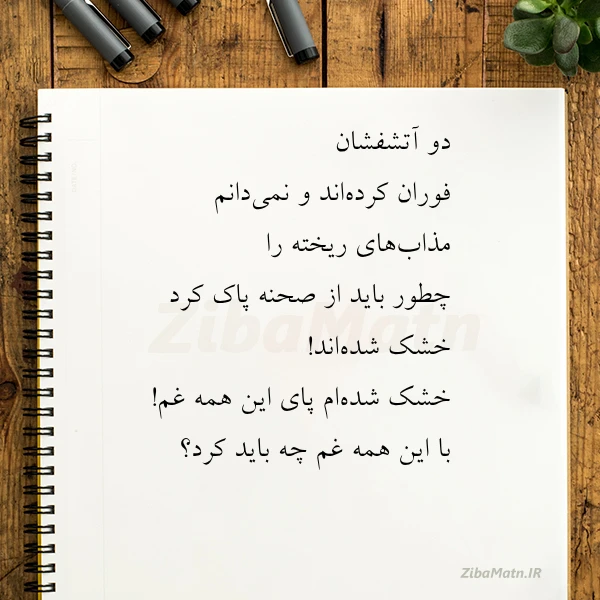 دو آتشفشان
فوران کرده‌اند و نمی‌دانم
مذاب‌های ریخته را
چطور باید از صحنه پاک کرد
خشک شده‌اند!
خشک شده‌ام پای این همه غم!
با این همه غم چه باید کرد؟
ZibaMatn
ZibaMatn.IR